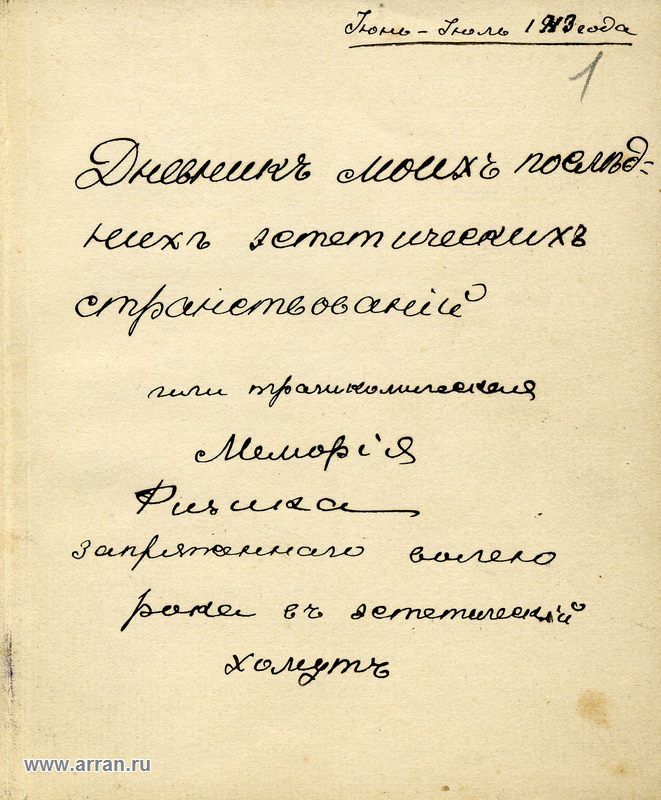 Июнь - Июль 1913 года
1
Дневникъ моихъ послѣд=
нихъ эстетическихъ
странствованій
или трагикомическая
Меморія
Физика
запряженнаго волею
рока въ эстетическій
хомутъ
www.arran.ru